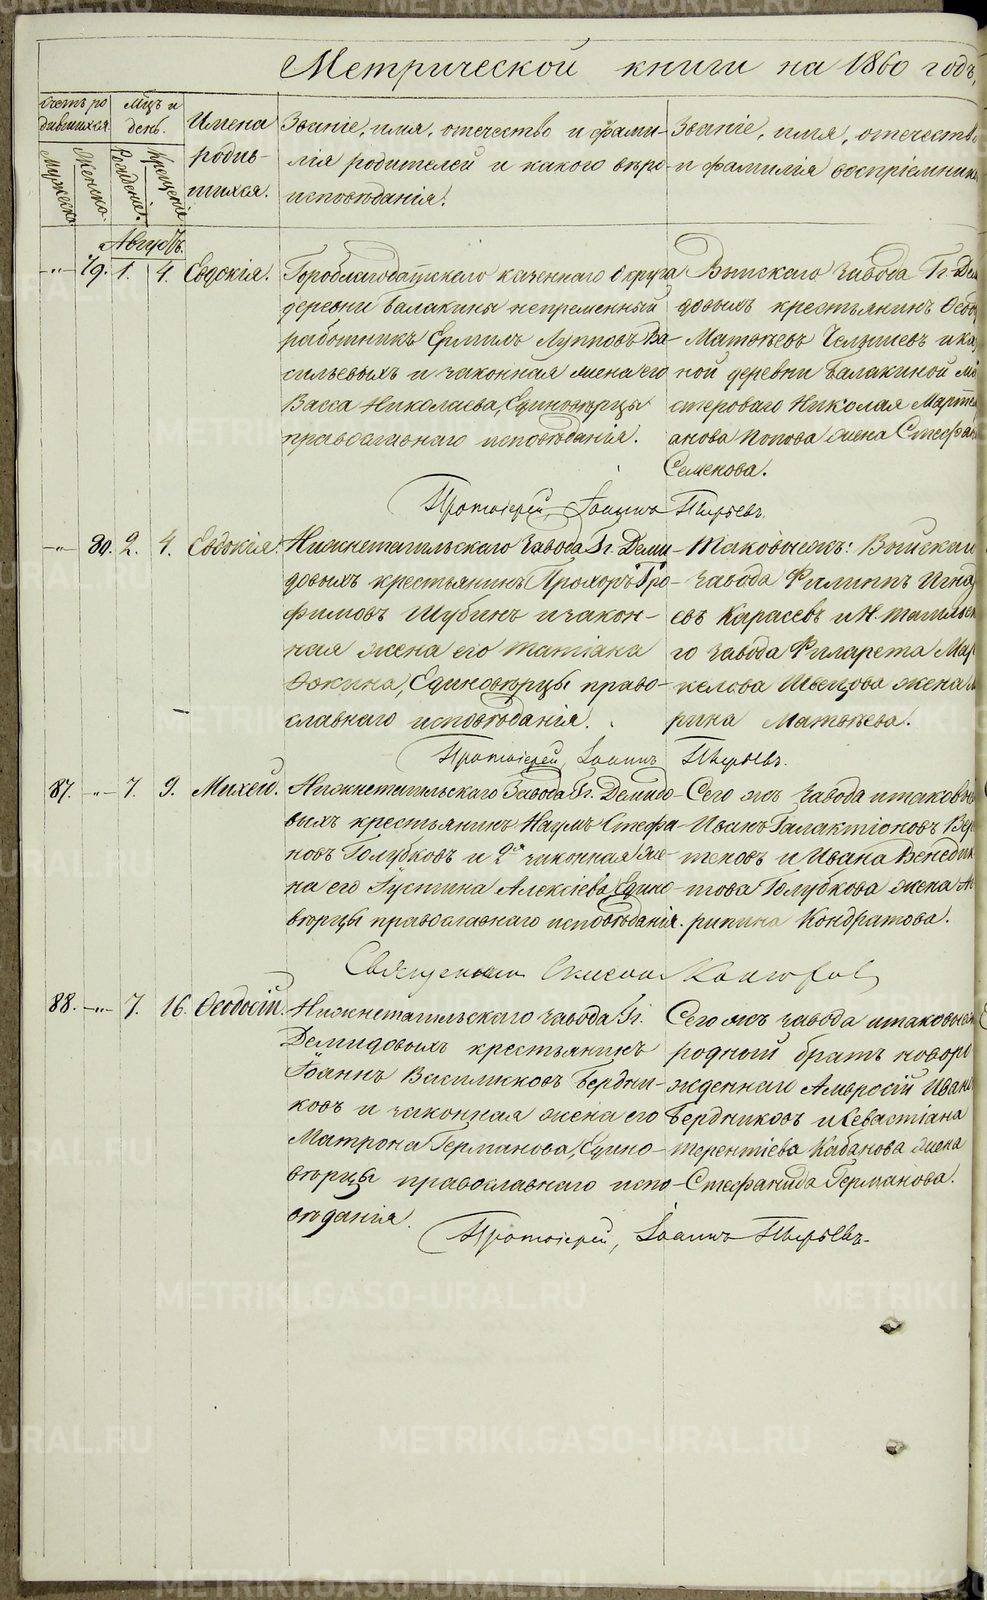 Метрической книги на 1860 годъ,
Счетъ ро
дившихся.
Мужеска.
Женска.
Мцъ и
день.
Рожденiе.
Крещенiе.
Имена
родив-
шихся.
Званiе, имя, отечество и фами-
лiя родителей и какого веро-
исповѣданiя.
Званiе, имя, отечество
и фамилiя воспрiемник
Августъ.
-"- 79. 1. 4. Евдокiя.
Гороблагодатскаго казеннаго округа
деревни Балакины непременный
работникъ Ермилъ Лупповъ Ва-
сильевыхъ и законная жена его
Васса Николаева, Единовѣрцы
православнаго исповѣданiя.
Выйскаго завода Гг. Дем
довыхъ крестьянинъ Ѳеод
Матвѣевъ Челышевъ и ка
ной деревни Балакиной ма
стероваго Николая Март
анова Попова жена Стефан
Семенова.
Протоiерей, Iоаннъ Пырьевъ.
-"- 80. 2. 4. Евдокiя.
Нижнетагильскаго завода Гг. Деми-
довыхъ крестьянинъ Прохоръ Тро-
фимовъ Шубинъ и закон-
ная жена его Татiана
Фокина, Единовѣрцы право-
славнаго исповѣданiя.
Таковыежъ: Выйскаг
завода Филиппъ Игнат
евъ Карасевъ и Н. Тагильск
го завода Филарета Мар
келова Швецова жена
рина Матвѣева.
Протоiерей, Iоаннъ Пырьевъ.
87. -"- 7. 9. Михей.
Нижнетагильскаго Завода Гг. Демидо-
выхъ крестьянинъ Наумъ Стефа-
новъ Голубковъ и 2я законная же-
на его Iустина Алексiева, Едино-
вѣрцы православнаго исповѣданiя.
Сего жъ завода и таковые
Иванъ Галактiоновъ Вер
теновъ и Ивана Венедик
това Голубкова жена
рипина Кондратова.
Священникъ
88. -"- 7. 16. Ѳеодосiй.
Нижнетагильскаго завода Гг.
Демидовыхъ крестьянинъ
Iоаннъ Васильковъ Бердни-
ковъ и законная жена его
Матрона Германова, Едино-
вѣрцы православнаго испо-
вѣданiя.
Сего жъ завода и таковые
родный братъ новоро
жденнаго Амвросiй Иван
Бердниковъ и Севастiана
Терентiева Кабанова жена
Стефанида Германова.
Протоiерей, Iоаннъ Пырьевъ.
METRIKI.GASO-URAL.RU